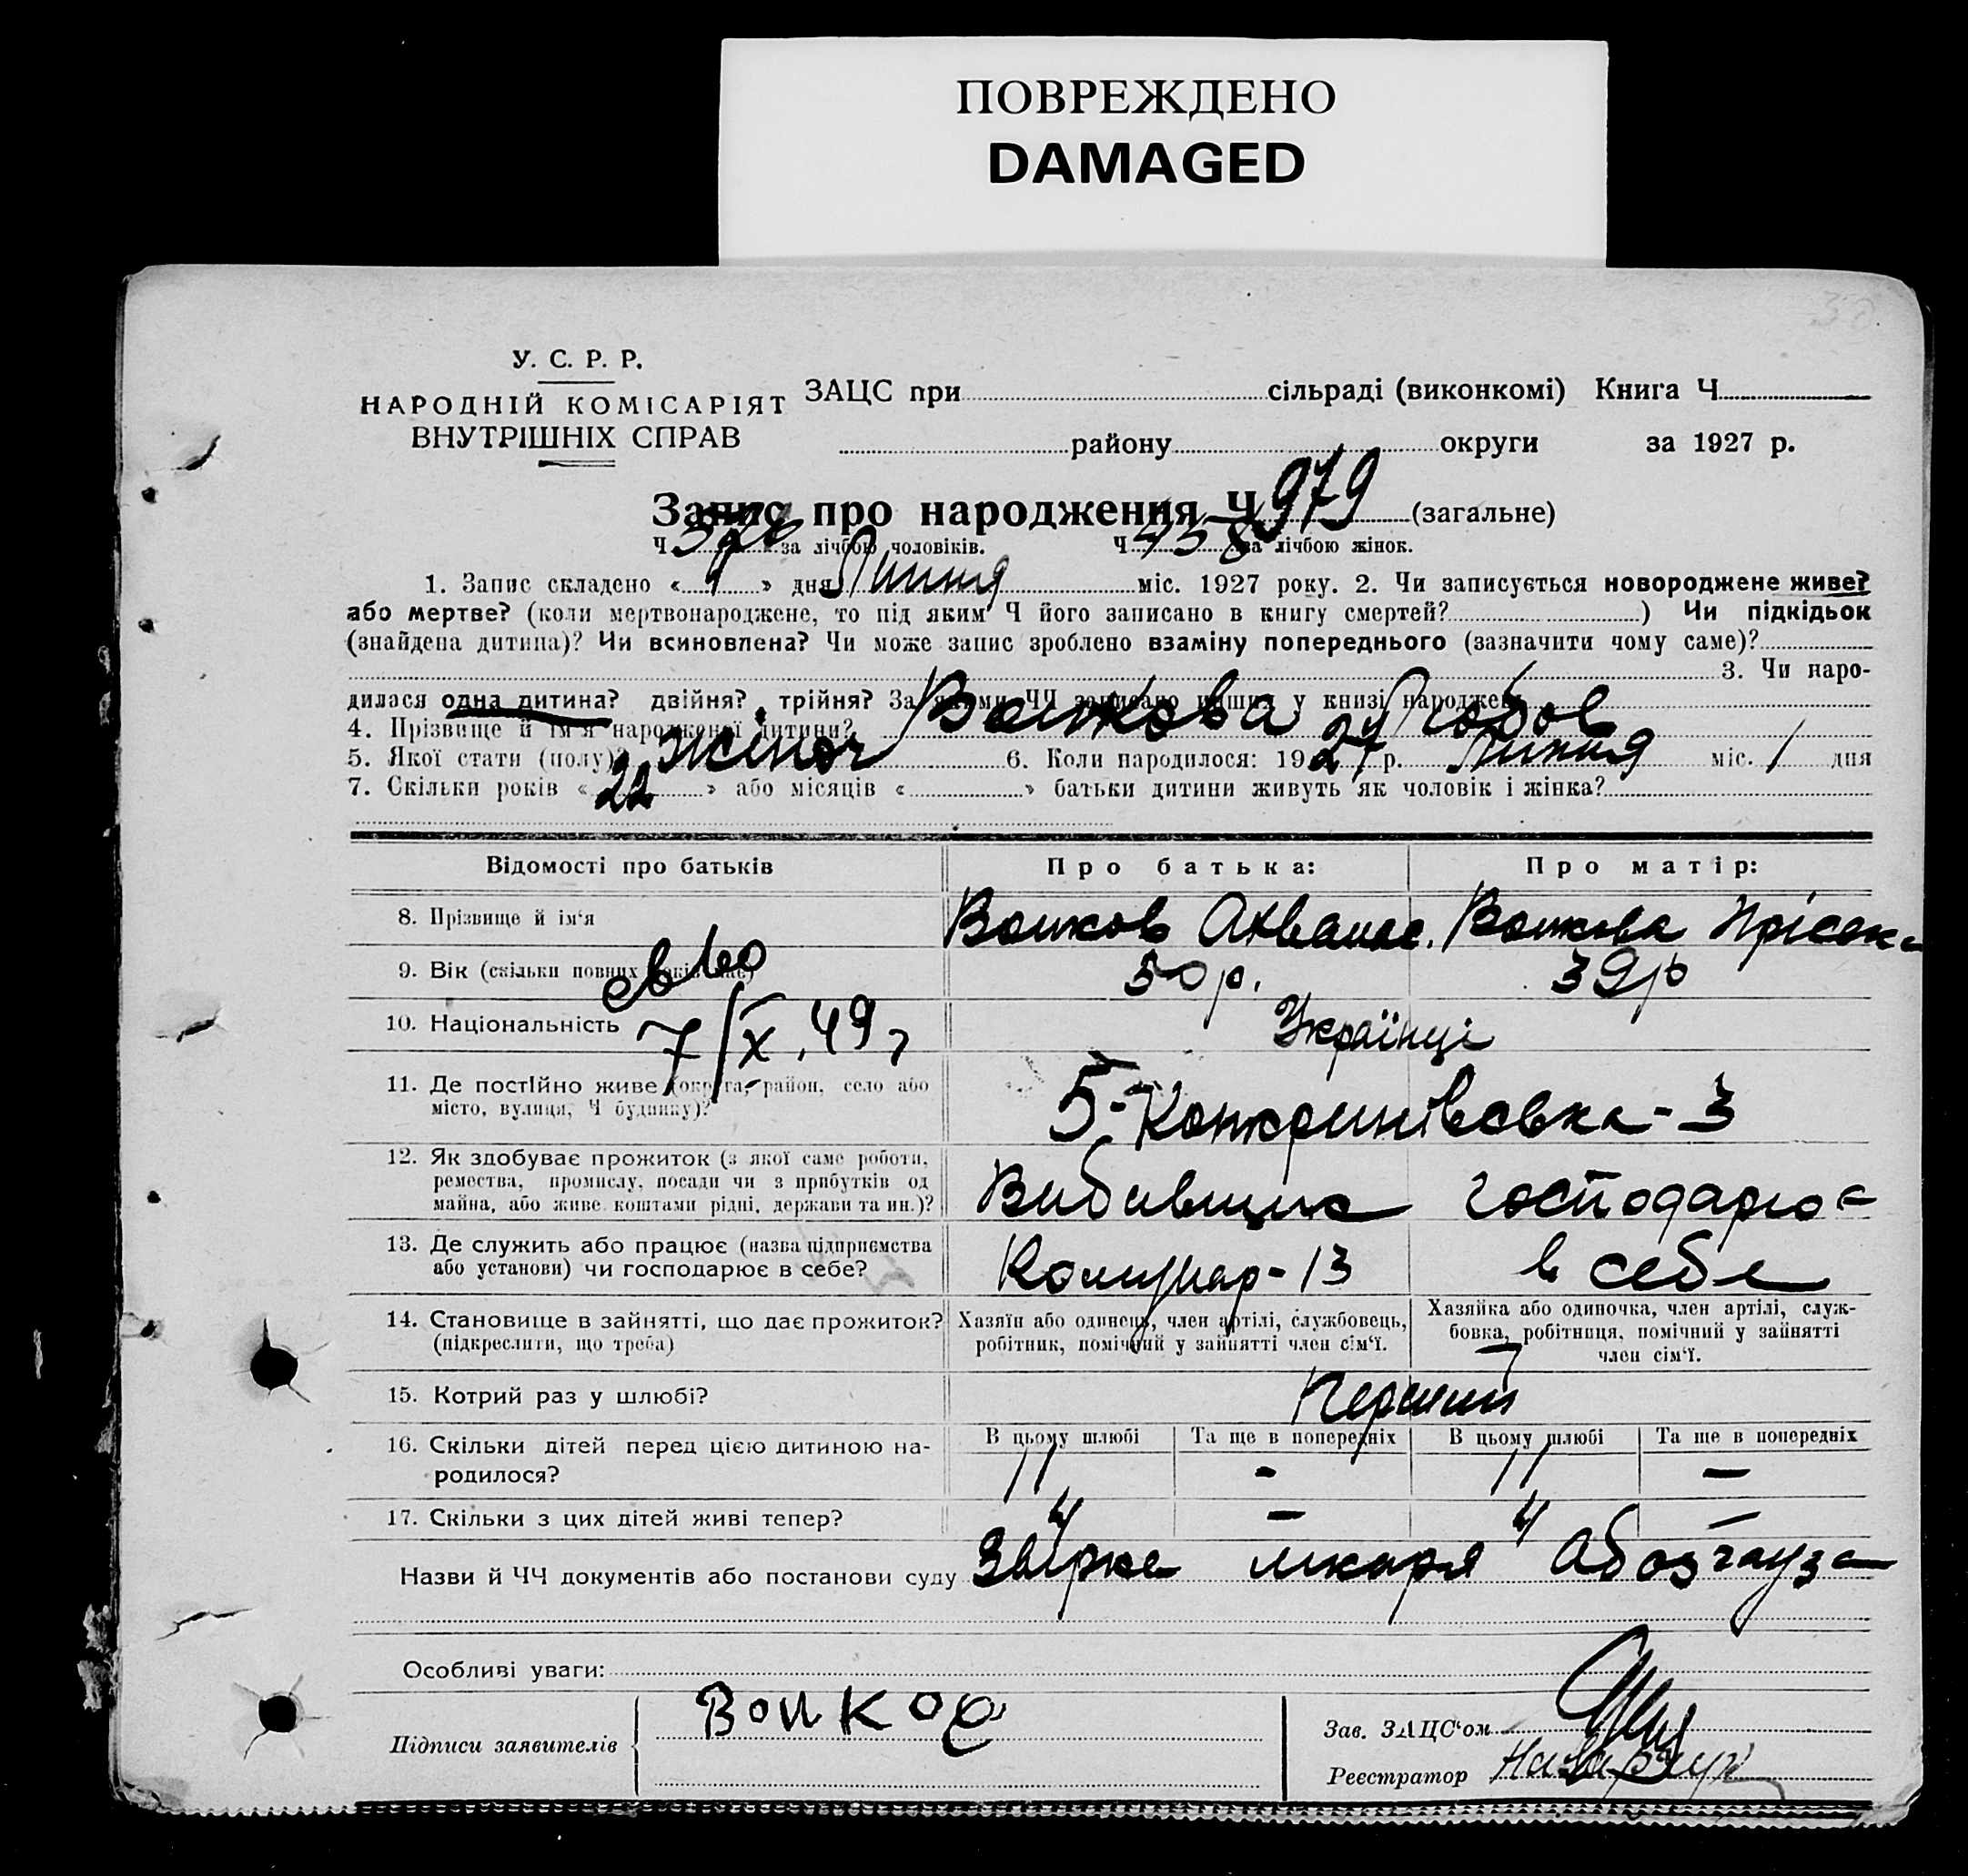 ПОВРЕЖДЕНО
DAMAGED
У. С. Р. Р.
НАРОДНІЙ КОМІСАРІЯТ
ВНУТРІШНІХ СПРАВ
ЗАЦС при сільраді (виконкомі) Книга Ч
району округи за 1927 р.
Запис про народження Ч 979 (загальне)
Ч за лічбою чоловіків. Ч 458 за лічбою жінок.
1. Запис складено « » дня Липня міс. 1927 року. 2. Чи записується новороджене живе?
або мертве? (коли мертвонароджене, то під яким Ч його записано в книгу смертей? ) Чи підкідьок
(знайдена дитина)? Чи всиновлена? Чи може запис зроблено взаміну попереднього (зазначити чому саме)?
3. Чи наро-
дилася одна дитина? двійня? трійня? За якими ЧЧ записано інших у книзі народжень
4. Прізвище й ім'я народженої дитини? Волкова Любов
5. Якої статі (полу)? жіноч 6. Коли народилося: 1927 р. Липня міс. 1 дня
7. Скільки років «22» або місяців « » батьки дитини живуть як чоловік і жінка?
Відомості про батьків
Про батька:
Про матір:
8. Прізвище й ім'я
Волков Ахванас.
Волкова Прісск
9. Вік (скільки повних років має)
50 р.
39 р
св во
7/IX.49 г
10. Національність
Українці
11. Де постійно живе (округа, район, село або
місто, вулиця, Ч будинку)?
5-
3
12. Як здобуває прожиток (з якої саме роботи,
ремества, промислу, посади чи з прибутків од
майна, або живе коштами рідні, держави та ин.)?
Вибивщик
господарює
13. Де служить або працює (назва підприємства
або установи) чи господарює в себе?
Комунар-13
в себе
14. Становище в зайнятті, що дає прожиток?
(підкреслити, що треба)
Хазяїн або одинець, член артілі, службовець,
робітник, помічний у зайнятті член сім'ї.
Хазяйка або одиночка, член артілі, служ-
бовка, робітниця, помічний у зайнятті
член сім'ї.
15. Котрий раз у шлюбі?
Перший
16. Скільки дітей перед цією дитиною на-
родилося?
В цьому шлюбі Та ще в попередніх В цьому шлюбі Та ще в попередніх
11 - 11 -
17. Скільки з цих дітей живі тепер?
4 - 4 -
Назви й ЧЧ документів або постанови суду лікаря
Особливі уваги:
Підписи заявителів
Волков
Зав. ЗАЦС'ом
Реєстратор